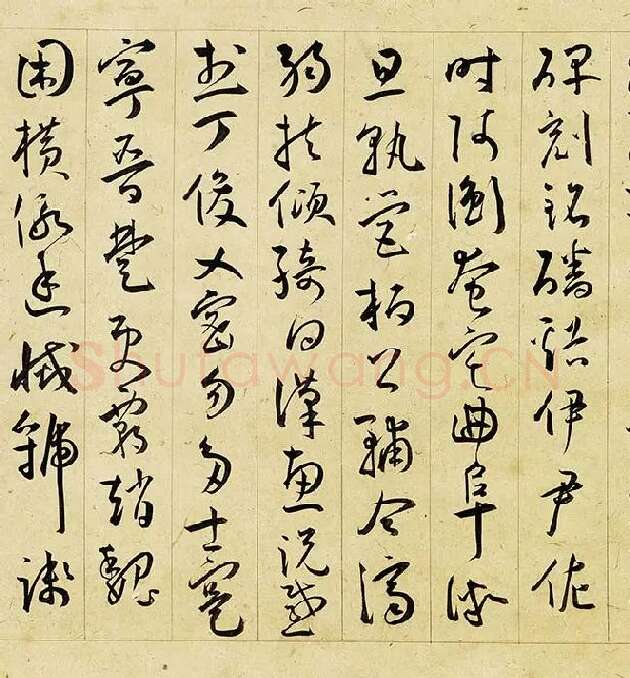 碑刻銘磻谿伊尹佐
時阿衡奄宅曲阜微
旦孰營桓公輔合濟
弱扶傾綺回漢惠說感
武丁俊乂密勿多士寔
寧晉楚更霸趙魏
困橫假途滅虢踐
Shufawang.CN